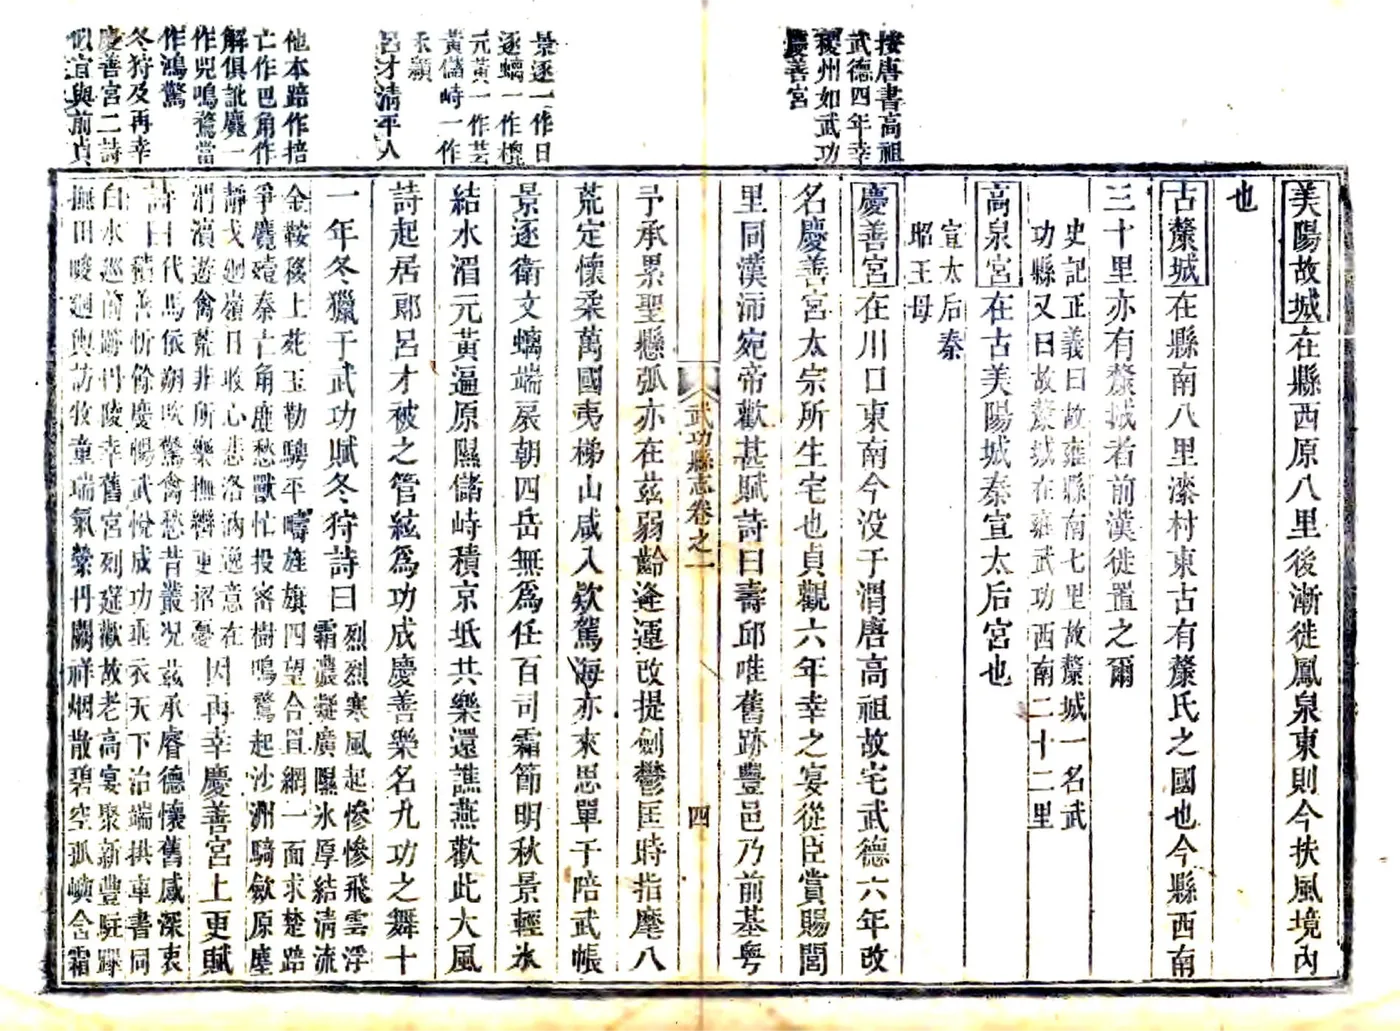 按唐書高祖
武德四年幸
稷州如武功
慶善宮
景逐一作日
逐螭一作槐
元黃一作芸
黃儲峙一作
禾穎
呂才清平人
他本踣作掊
亡作巴角作
解俱訛麾一
作兕鳴鶩當
作鴻驚
冬狩及再幸
慶善宮二詩
似宜與前貞
美陽故城在縣西原八里後漸徙鳳泉東則今扶風境內
也
古斄城在縣南八里漆村東古有斄氏之國也今縣西南
三十里亦有斄城者前漢徙置之爾
史記正義曰故雍縣南七里故斄城一名武
功縣又曰故斄城在雍武功西南二十二里
高泉宮在古美陽城秦宣太后宮也
宣太后秦
昭王母
慶善宮在川口東南今没于渭唐高祖故宅武德六年改
名慶善宮太宗所生宅也貞觀六年幸之宴從臣賞賜閭
里同漢沛宛帝歡甚賦詩曰壽邱唯舊跡豐邑乃前基粤
武功縣志卷之一
四
予承累聖懸弧亦在茲弱齡逢運改提劍鬱匡時指麾八
荒定懷柔萬國夷梯山咸入欵駕海亦來思單于陪武帳
景逐衛文螭端扆朝四岳無爲任百司霜節明秋景輕氷
結水湄元黃遍原隰儲峙積京坻共樂還譙燕歡此大風
詩起居郎呂才被之管絃爲功成慶善樂名九功之舞十
一年冬獵于武功賦冬狩詩曰
烈烈寒風起慘慘飛雲浮
霜濃凝廣隰氷厚結清流
金鞍移上苑玉勒騁平疇旌旗四望合罝網一面求楚踣
爭麑殪秦亡角鹿愁獸忙投密樹鳴驚起沙洲騎歛原塵
靜戈迴嶺日收心悲洛汭逸意在
渭濱遊禽荒非所樂撫轡更招憂
因再幸慶善宮上更賦
詩曰
代馬依朔吹驚禽愁昔叢况茲承睿德懷舊感深衷
積善忻餘慶暢武悅成功垂衣天下治端拱車書同
白水巡前跡丹陵幸舊宮列筵歡故老高宴聚新豐駐蹕
撫田畯迴輿訪牧童瑞氣縈丹闕祥烟散碧空孤嶼含霜